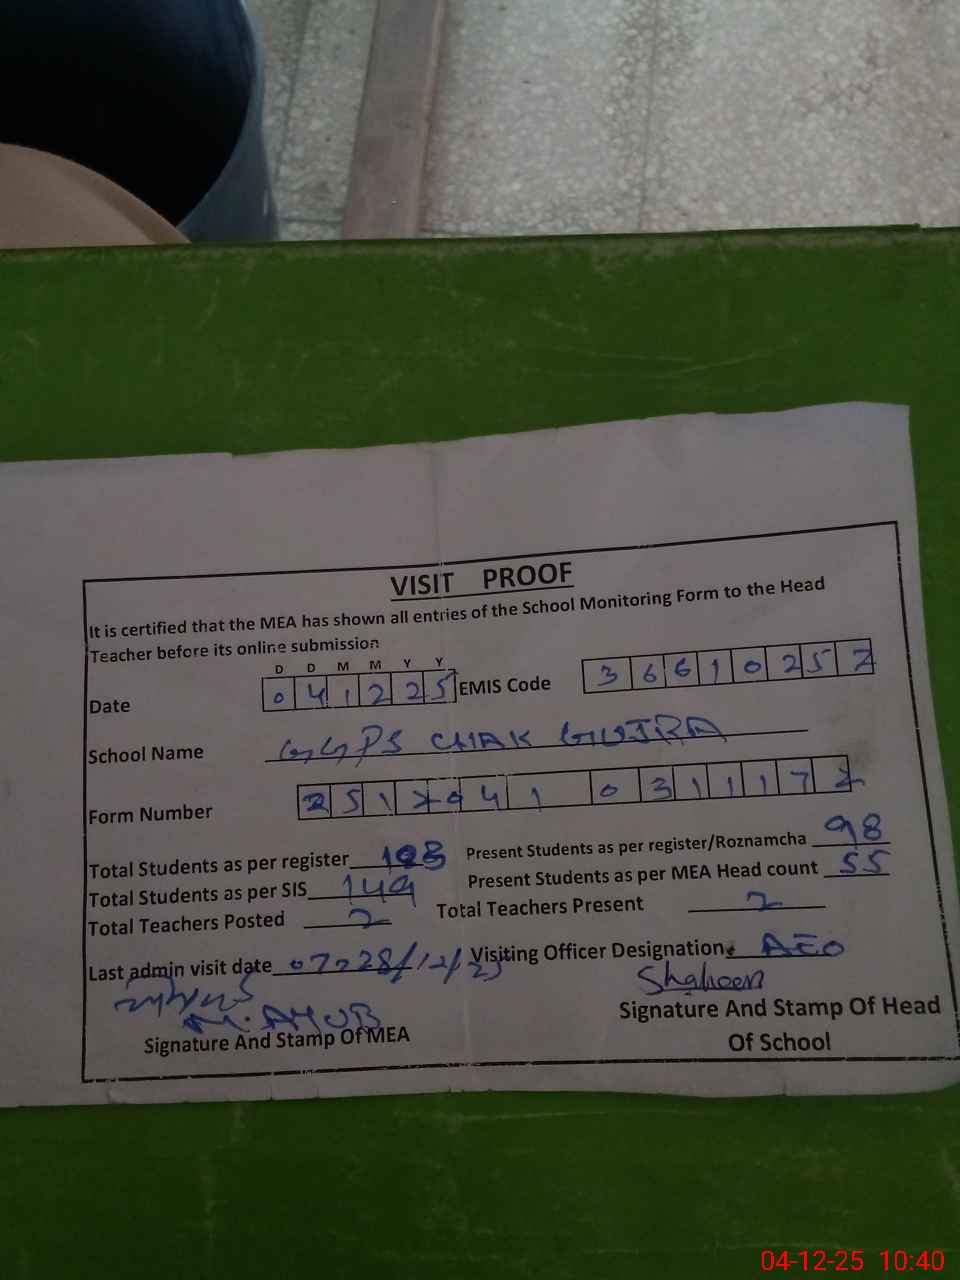 VISIT PROOF
It is certified that the MEA has shown all entries of the School Monitoring Form to the Head
Teacher before its online submission
D D M M Y Y
Date 0 4 1 2 2 5 EMIS Code 3 6 6 1 0 2 5 7
School Name GGPS CHAK GUJRA
Form Number
Total Students as per register Present Students as per register/Roznamcha 98
Total Students as per SIS 149 Present Students as per MEA Head count 55
Total Teachers Posted 2 Total Teachers Present 2
Last admin visit date Visiting Officer Designation AEO
Shaheen
M. AYUB
Signature And Stamp Of MEA Signature And Stamp Of Head
Of School
04-12-25 10:40